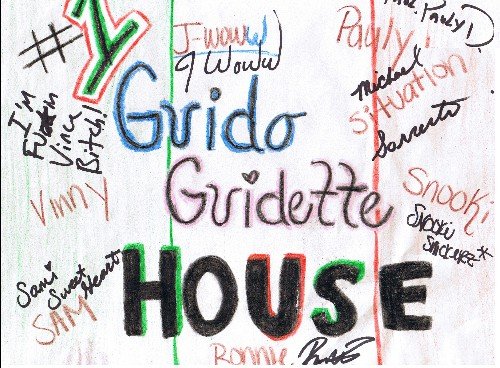 #1
J-WOWW
JWOWW
Pauly!
Pauly D!
Michael
Situation
Sorrentino
I'M
Fuckin
Vinny
Bitch!
Guido
Guidette
HOUSE
Vinny
Snooki
Snooki
Snickerz*
Sami
Sweet
Heart
SAM
Ronnie